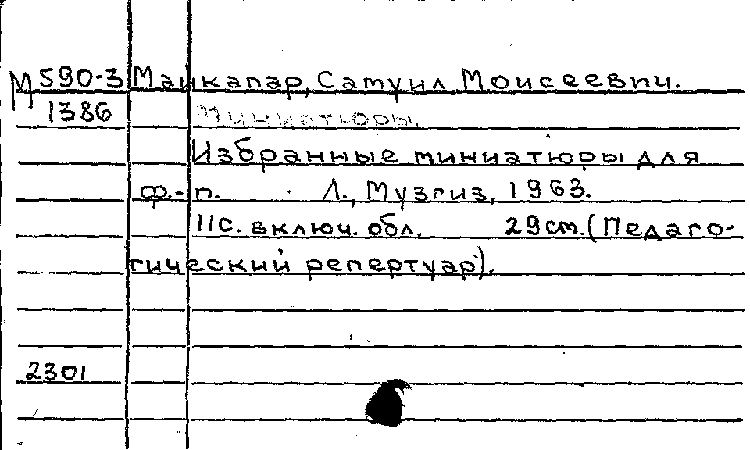 М 590-3 Майкапар, Самуил Моисеевич.
1386 Миниатюры.
Избранные миниатюры для
ф.-п. Л., Музгиз, 1963.
11с. включ. обл. 29см. (Педаго-
гический репертуар).
2301